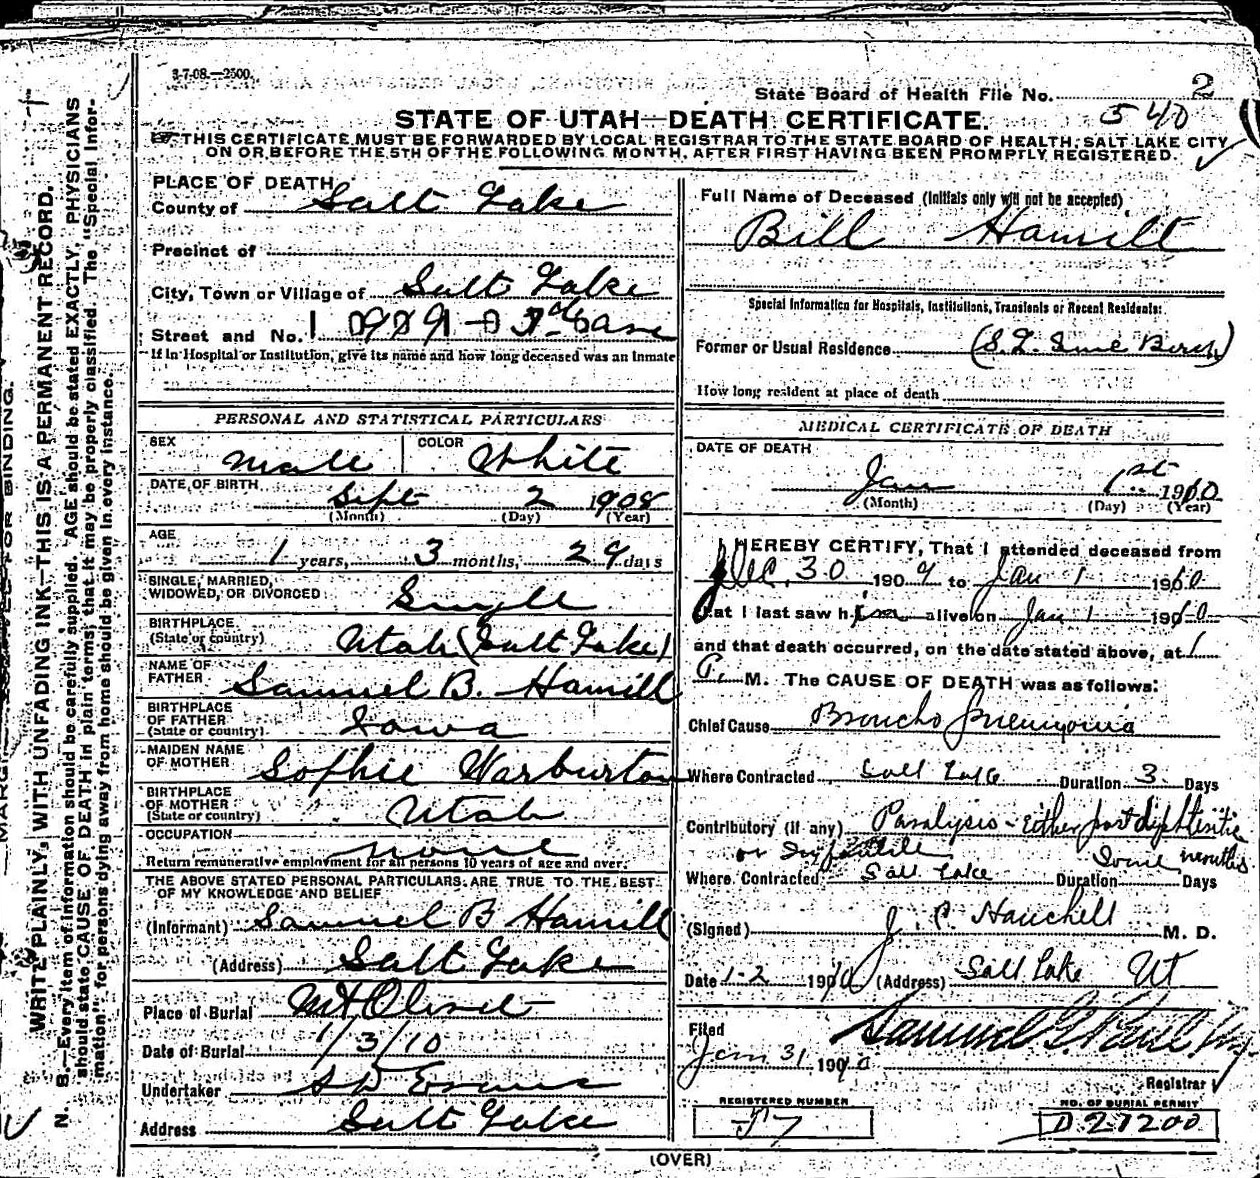 3-7-08.—2500.
State Board of Health File No. 2
540
STATE OF UTAH—DEATH CERTIFICATE.
THIS CERTIFICATE MUST BE FORWARDED BY LOCAL REGISTRAR TO THE STATE BOARD OF HEALTH, SALT LAKE CITY,
ON OR BEFORE THE 5TH OF THE FOLLOWING MONTH, AFTER FIRST HAVING BEEN PROMPTLY REGISTERED.
PLACE OF DEATH
County of Salt Lake
Precinct of
City, Town or Village of Salt Lake
Street and No.
If in Hospital or Institution, give its name and how long deceased was an Inmate
PERSONAL AND STATISTICAL PARTICULARS
SEX Male COLOR White
DATE OF BIRTH Sept 2 1908
(Month) (Day) (Year)
AGE
1 years, 3 months, 29 days
SINGLE, MARRIED,
WIDOWED, OR DIVORCED Single
BIRTHPLACE
(State or country) Utah (Salt Lake)
NAME OF
FATHER Samuel B. Hamill
BIRTHPLACE
OF FATHER
(State or country) Iowa
MAIDEN NAME
OF MOTHER Sophie Warburton
BIRTHPLACE
OF MOTHER
(State or country) Utah
OCCUPATION none
Return remunerative employment for all persons 10 years of age and over.
THE ABOVE STATED PERSONAL PARTICULARS ARE TRUE TO THE BEST
OF MY KNOWLEDGE AND BELIEF
(Informant) Samuel B Hamill
(Address) Salt Lake
Place of Burial Mt Olivet
Date of Burial 1/3/10
Undertaker S D Evans
Address Salt Lake
Full Name of Deceased (Initials only will not be accepted)
Bill Hamill
Special Information for Hospitals, Institutions, Transients or Recent Residents:
Former or Usual Residence (S.L. Since Birth)
How long resident at place of death
MEDICAL CERTIFICATE OF DEATH
DATE OF DEATH
Jan 1st 1910
(Month) (Day) (Year)
I HEREBY CERTIFY, That I attended deceased from
Dec. 30 1909 to Jan 1 1910
that I last saw him alive on Jan 1 1910
and that death occurred, on the date stated above, at 1
P. M. The CAUSE OF DEATH was as follows:
Chief Cause Broncho pneumonia
Where Contracted Salt Lake Duration 3 Days
Contributory (if any) Paralysis - Either post diphtheritic
or Infantile Some months
Where Contracted Salt Lake Duration Days
(Signed) J. P. M. D.
Date 1-2 1910 (Address) Salt Lake Ut
Filed
Jan 31 1910 Samuel G. Paul
Registrar
REGISTERED NUMBER
57
NO. OF BURIAL PERMIT
D 27200
(OVER)
MARGIN RESERVED FOR BINDING.
WRITE PLAINLY, WITH UNFADING INK—THIS IS A PERMANENT RECORD.
N. B.—Every item of information should be carefully supplied. AGE should be stated EXACTLY, PHYSICIANS
should state CAUSE OF DEATH in plain terms, that it may be properly classified. The "Special Infor-
mation" for persons dying away from home should be given in every instance.